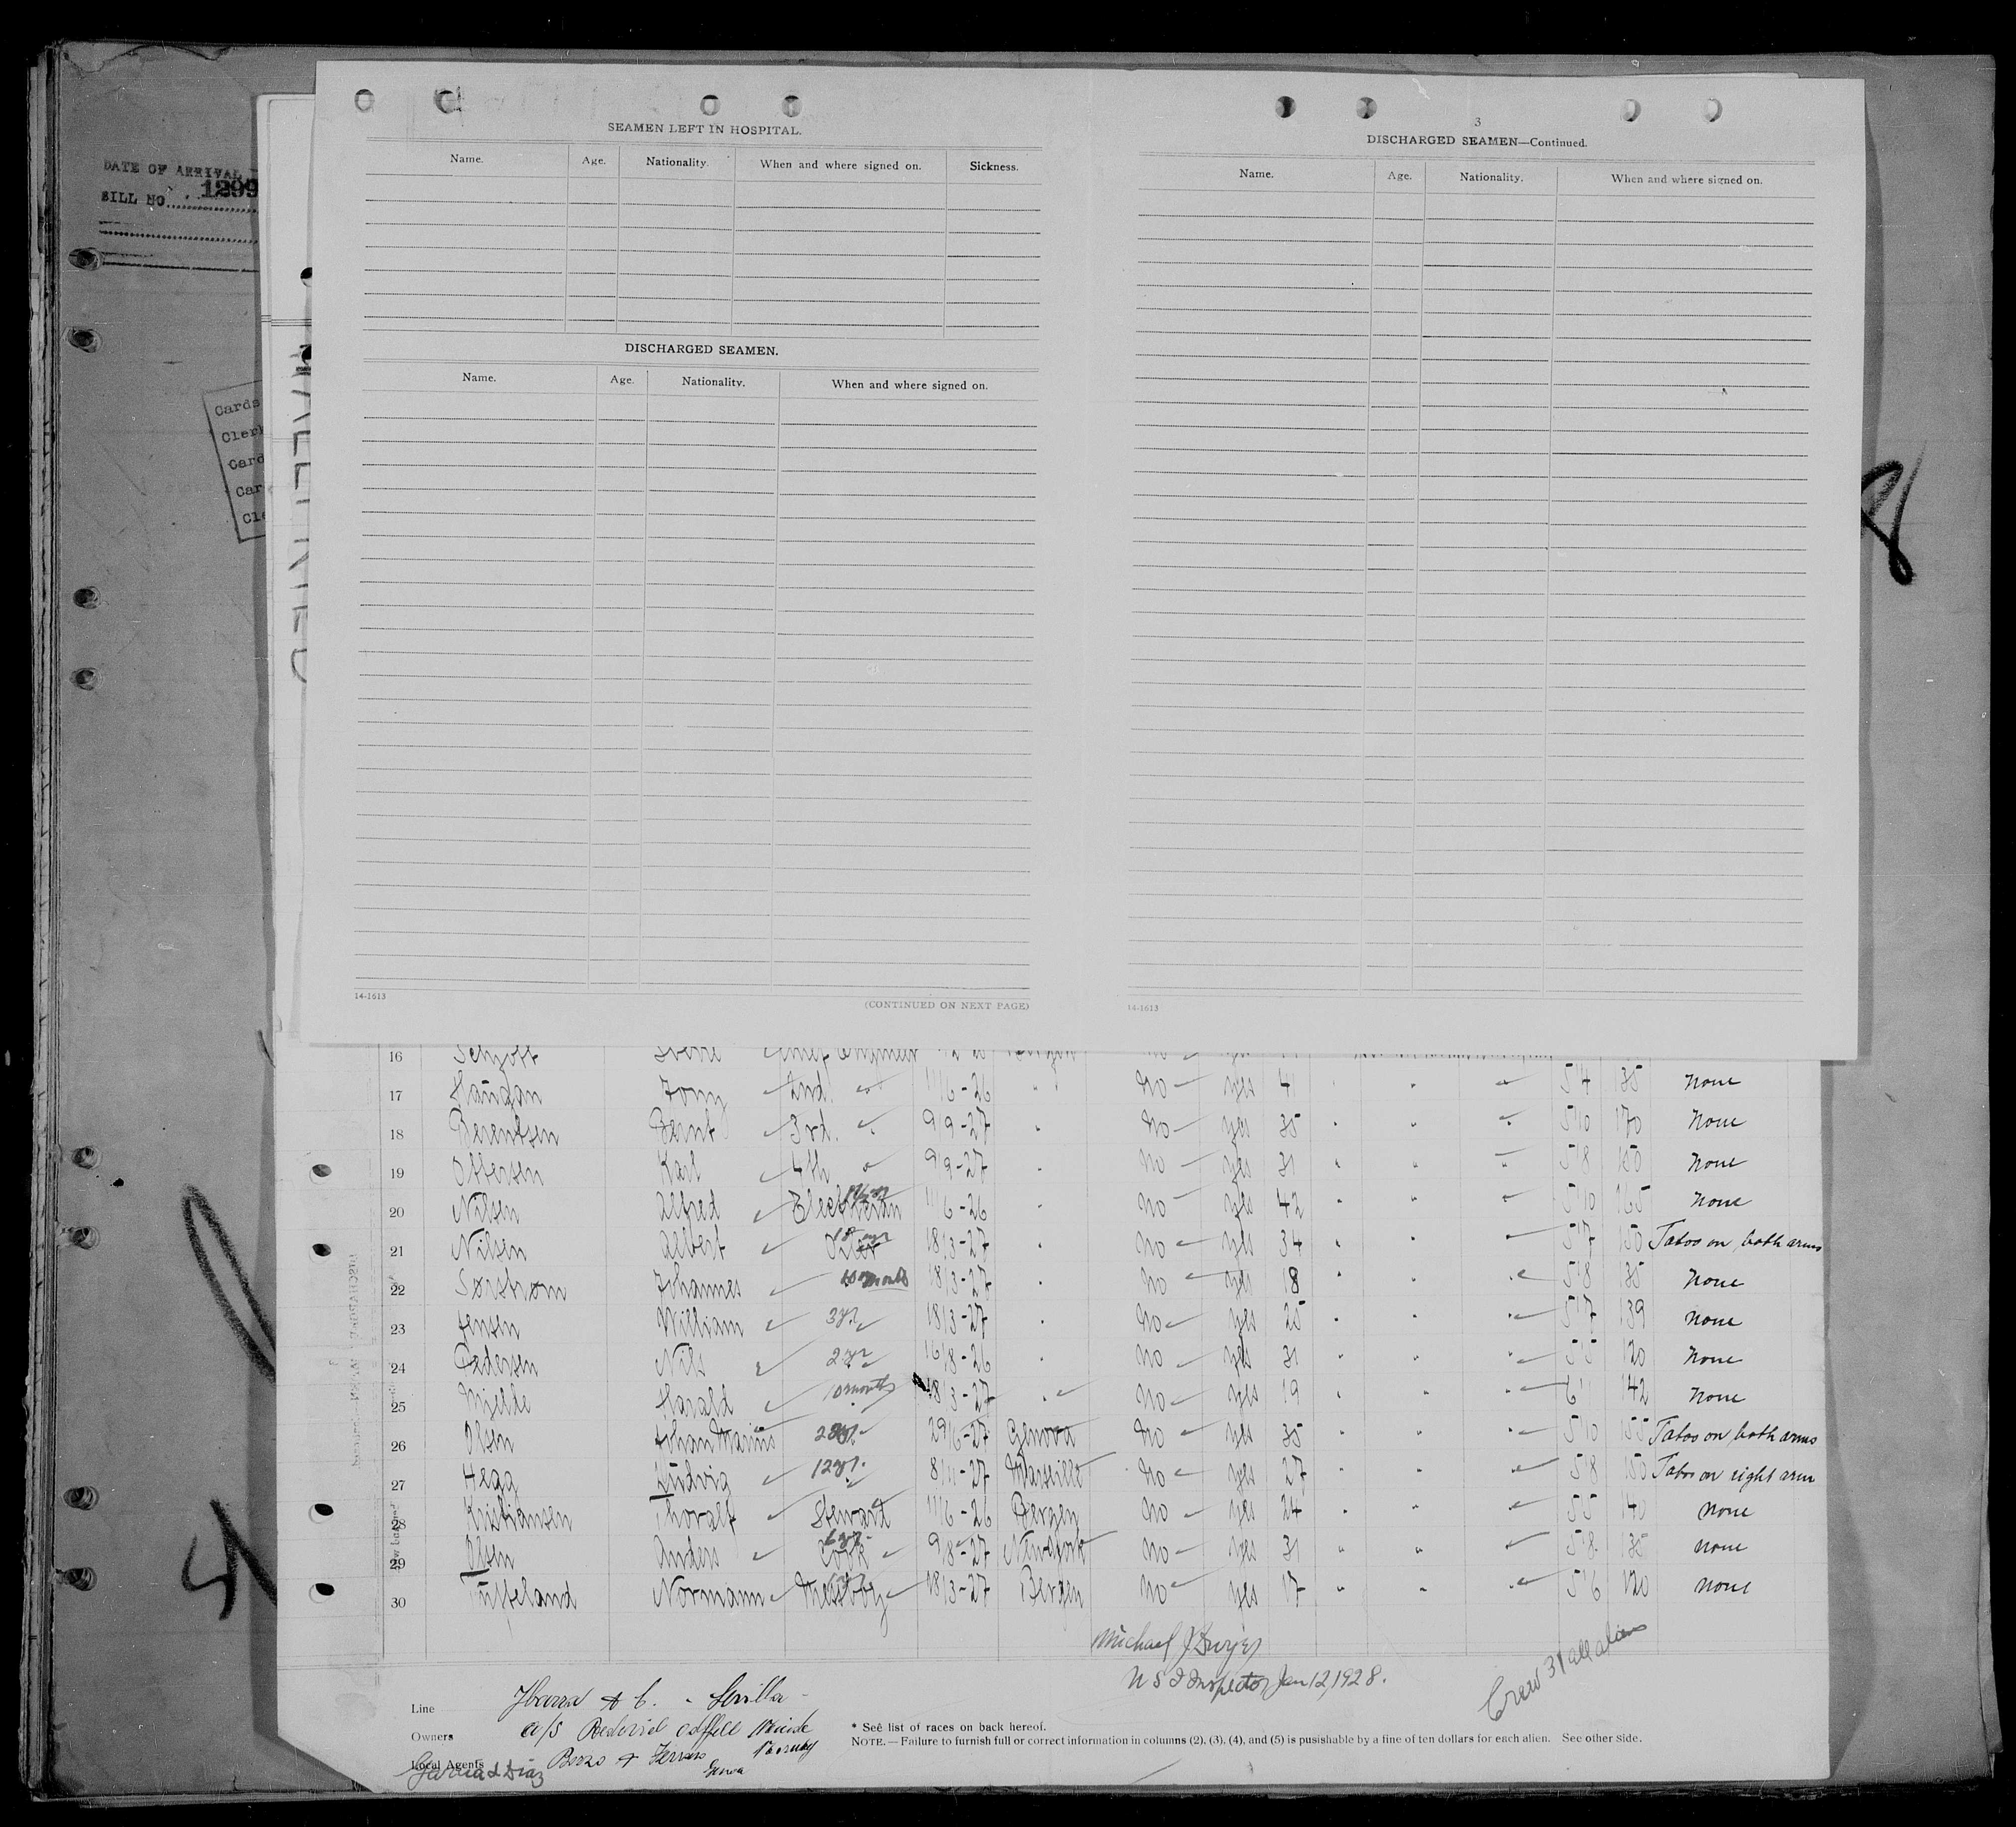 DATE OF ARRIVAL
BILL NO. 1299
Cards
Clerk
Card
Car
Cle
8
SEAMEN LEFT IN HOSPITAL.
Name. Age. Nationality. When and where signed on. Sickness.
DISCHARGED SEAMEN.
Name. Age. Nationality. When and where signed on.
14-1613
(CONTINUED ON NEXT PAGE)
3
DISCHARGED SEAMEN—Continued.
Name. Age. Nationality. When and where signed on.
14-1613
16 Chief Engineer
17 2nd. " 1/6-26 " No yes 41 " " " 5'4 135 None
18 Berentsen Bernt 3rd. " 9/9-27 " No yes 35 " " " 5'10 170 None
19 Ottersen Karl 4th " 9/9-27 " No yes 31 " " " 5'8 150 None
20 Nilsen Alfred Electrician 1/6-26 " No yes 42 " " " 5'10 165 None
21 Nilsen Albert 18/3-27 " No yes 34 " " " 5'7 150 Tatoo on both arms
22 Sørstrøm Johannes 10 months 18/3-27 " No yes 18 " " " 5'8 135 None
23 Jensen William 3 yr 18/3-27 " No yes 25 " " " 5'7 139 None
24 Pedersen Nils 2 yr 16/8-26 " No yes 31 " " " 5'5 120 None
25 Mjelde Harald 10 months 18/3-27 " No yes 19 " " " 6'1 142 None
26 Olsen Johan Marius 29/6-27 Genova No yes 35 " " " 5'10 155 Tatoo on both arms
27 Hegg Ludvig 12 yr. 8/11-27 Marseille No yes 27 " " " 5'8 150 Tatoo on right arm
28 Kristiansen Thoralf Steward 1/6-26 Bergen No yes 24 " " " 5'5 140 none
29 Olsen Anders Cook 9/8-27 New York No yes 31 " " " 5'8 135 none
30 Normann Messboy 18/3-27 Bergen No yes 17 " " " 5'6 120 none
Michael J Dwyer
U S I Inspector Jan 12, 1928.
Crew 31 all aliens
Line Ybarra & C. - Sevilla -
Owners A/S Rederiet Odfjell
Local Agents
Garcia & Diaz
Genoa
* See list of races on back hereof.
NOTE.—Failure to furnish full or correct information in columns (2), (3), (4), and (5) is punishable by a fine of ten dollars for each alien. See other side.